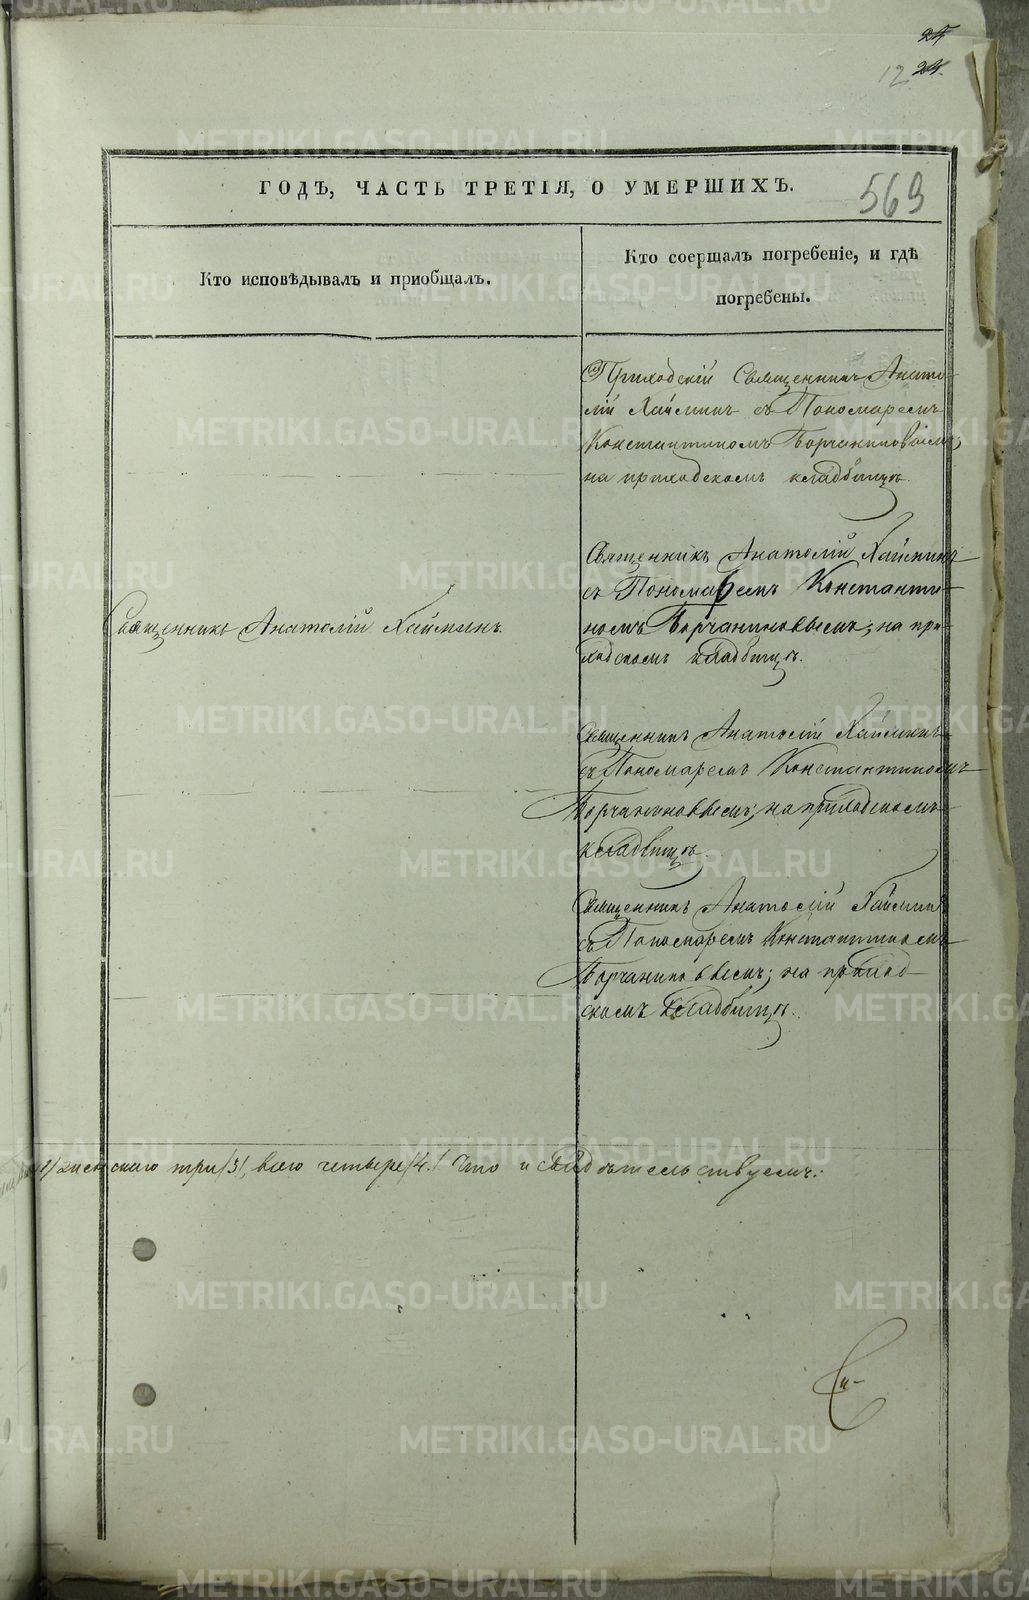 24
12 24.
ГОДЪ, ЧАСТЬ ТРЕТІЯ, О УМЕРШИХЪ.
569
Кто исповѣдывалъ и приобщалъ.
Кто соершалъ погребеніе, и гдѣ
погребены.
Приходскій Священникъ Анато-
лій Хаймин съ Пономаремъ
Константиномъ Борчаниновымъ;
на приходскомъ кладбищѣ.
Священникъ Анатолій Хайминъ
съ Пономаремъ Константи-
номъ Борчаниновымъ; на при-
ходскомъ кладбищѣ.
Священникъ Анатолій Хайминъ.
Священникъ Анатолій Хайминъ
съ Пономаремъ Константиномъ
Борчаниновымъ; на приходскомъ
кладбищѣ.
Священникъ Анатолій Хайминъ
съ Пономаремъ Константиномъ
Борчаниновымъ; на приход-
скомъ кладбищѣ.
женскаго три /3/, всего четыре /4/. Что и свидѣтельствуемъ:
METRIKI.GASO-URAL.RU